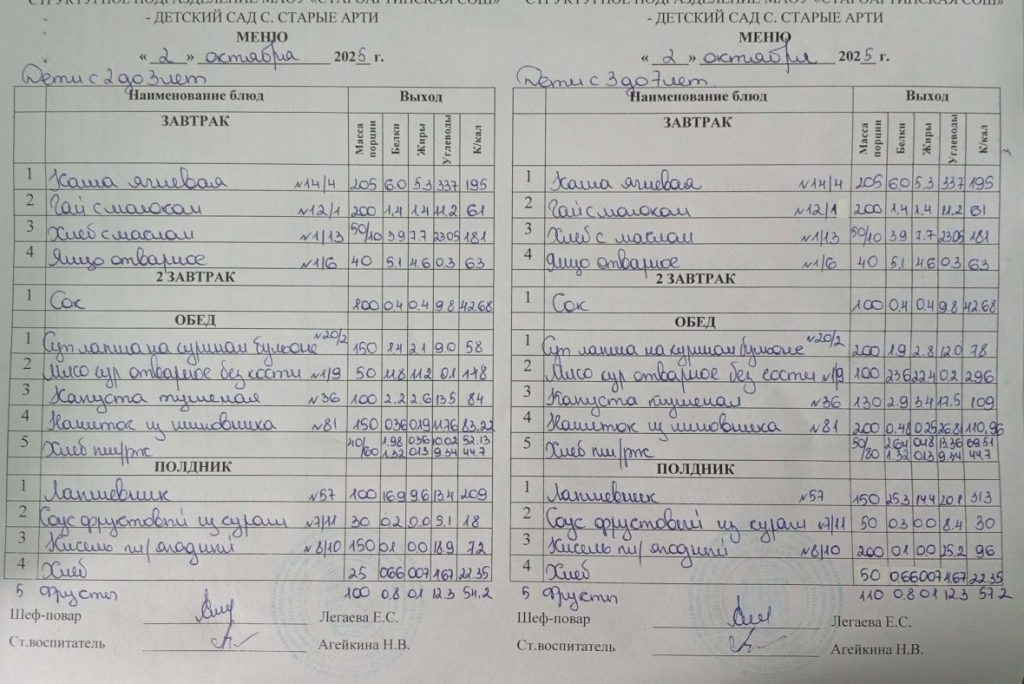 СТРУКТУРНОЕ ПОДРАЗДЕЛЕНИЕ МАОУ «СТАРОАРТИНСКАЯ СОШ»
- ДЕТСКИЙ САД С. СТАРЫЕ АРТИ
МЕНЮ
« 2 » октября 2025 г.
Дети с 2 до 3 лет
Наименование блюд Выход
ЗАВТРАК Масса порции Белки Жиры Углеводы К/кал
1 Каша ячневая №14/4 205 6.0 5.3 33.7 195
2 Чай с молоком №12/1 200 1.4 1.4 11.2 61
3 Хлеб с маслом №1/13 50/10 3.9 7.7 23.05 181
4 Яйцо отварное №1/6 40 5.1 4.6 0.3 63
2 ЗАВТРАК
1 Сок 100 0.4 0.4 9.8 42.68
ОБЕД
1 Суп лапша на курином бульоне №20/2 150 1.4 2.1 9.0 58
2 Мясо кур отварное без кости №1/9 50 11.8 11.2 0.1 148
3 Капуста тушеная №36 100 2.2 2.6 13.5 84
4 Напиток из шиповника №81 150 0.36 0.19 17.6 83.22
5 Хлеб пш/рж 40/60 1.98 0.36 10.02 52.13
1.32 0.13 9.34 44.7
ПОЛДНИК
1 Лапшевник №57 100 16.9 9.6 13.4 209
2 Соус фруктовый из кураги №7/11 30 0.2 0.0 5.1 18
3 Кисель пл/ягодный №8/10 150 0.1 0.0 18.9 72
4 Хлеб 25 0.66 0.07 4.67 22.35
5 Фрукты 100 0.8 0.1 12.3 54.2
Шеф-повар Легаева Е.С.
Ст.воспитатель Агейкина Н.В.
СТРУКТУРНОЕ ПОДРАЗДЕЛЕНИЕ МАОУ «СТАРОАРТИНСКАЯ СОШ»
- ДЕТСКИЙ САД С. СТАРЫЕ АРТИ
МЕНЮ
« 2 » октября 2025 г.
Дети с 3 до 7 лет
Наименование блюд Выход
ЗАВТРАК Масса порции Белки Жиры Углеводы К/кал
1 Каша ячневая №14/4 205 6.0 5.3 33.7 195
2 Чай с молоком №12/1 200 1.4 1.4 11.2 61
3 Хлеб с маслом №1/13 50/10 3.9 7.7 23.05 181
4 Яйцо отварное №1/6 40 5.1 4.6 0.3 63
2 ЗАВТРАК
1 Сок 100 0.4 0.4 9.8 42.68
ОБЕД
1 Суп лапша на курином бульоне №20/2 200 1.9 2.8 12.0 78
2 Мясо кур отварное без кости №1/9 100 23.6 22.4 0.2 296
3 Капуста тушеная №36 130 2.9 3.4 17.5 109
4 Напиток из шиповника №81 200 0.48 0.25 26.81 110.96
5 Хлеб пш/рж 50/80 2.64 0.48 13.36 69.51
1.32 0.13 9.34 44.7
ПОЛДНИК
1 Лапшевник №57 150 25.3 14.4 20.1 313
2 Соус фруктовый из кураги №7/11 50 0.3 0.0 8.4 30
3 Кисель пл/ягодный №8/10 200 0.1 0.0 25.2 96
4 Хлеб 50 0.66 0.07 4.67 22.35
5 Фрукты 110 0.8 0.1 12.3 57.2
Шеф-повар Легаева Е.С.
Ст.воспитатель Агейкина Н.В.